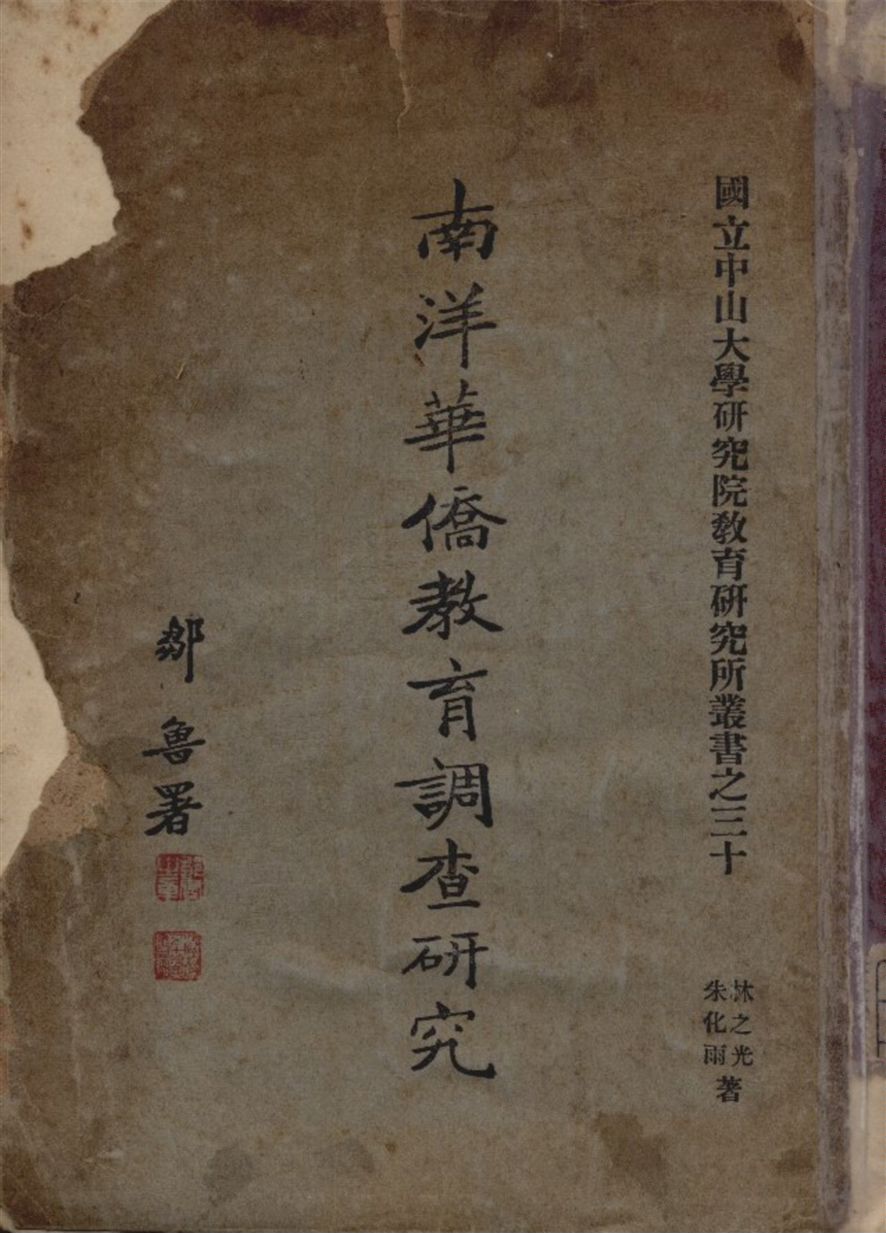 國立中山大學研究院教育研究所叢書之三十
林之光
朱化雨
著
南洋華僑教育調查研究
鄒魯署